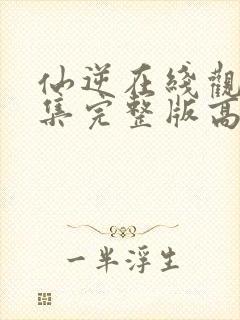 仙逆在綫觀
集完整版高
一半浮生